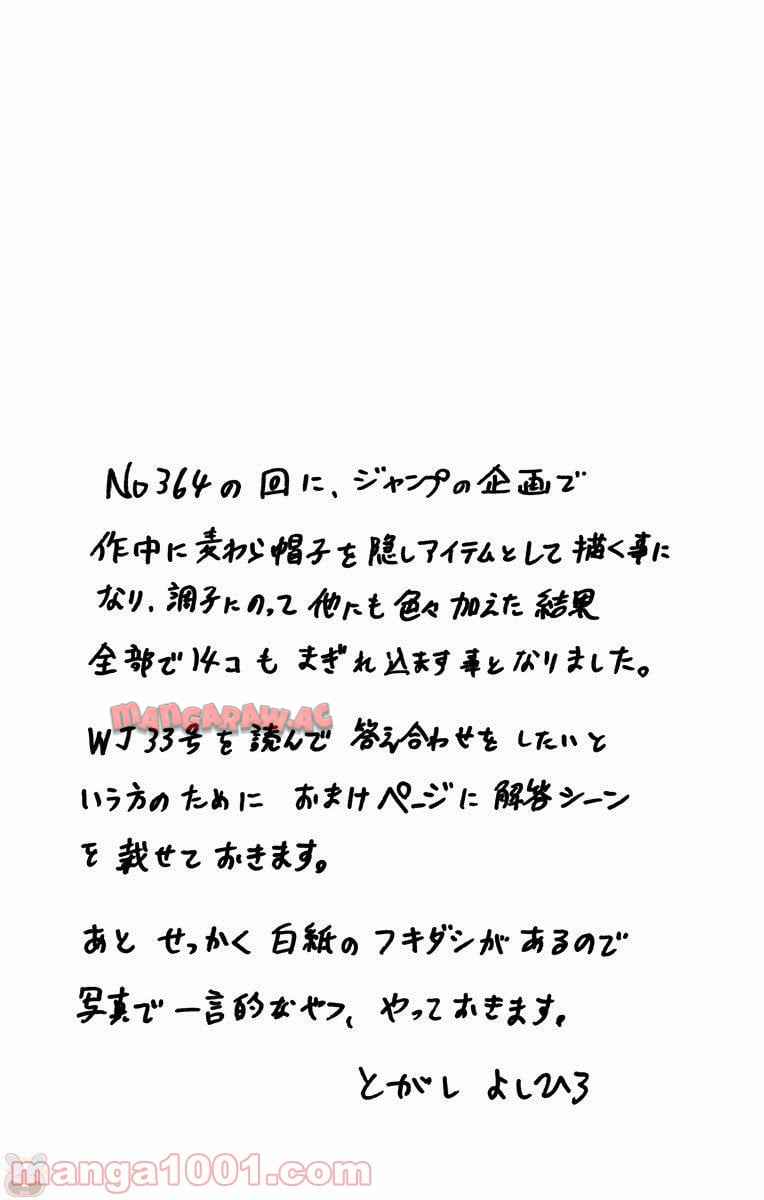 No364の回に、ジャンプの企画で
作中に麦わら帽子を隠しアイテムとして描く事に
なり、調子にのって他にも色々加えた結果
全部で14コもまぎれ込ます事となりました。
MANGARAW.AC
WJ33号を読んで答え合わせをしたいと
いう方のためにおまけページに解答シーン
を載せておきます。
あとせっかく白紙のフキダシがあるので
写真で一言的なやつ、やっておきます。
とがしよしひろ
manga1001.com